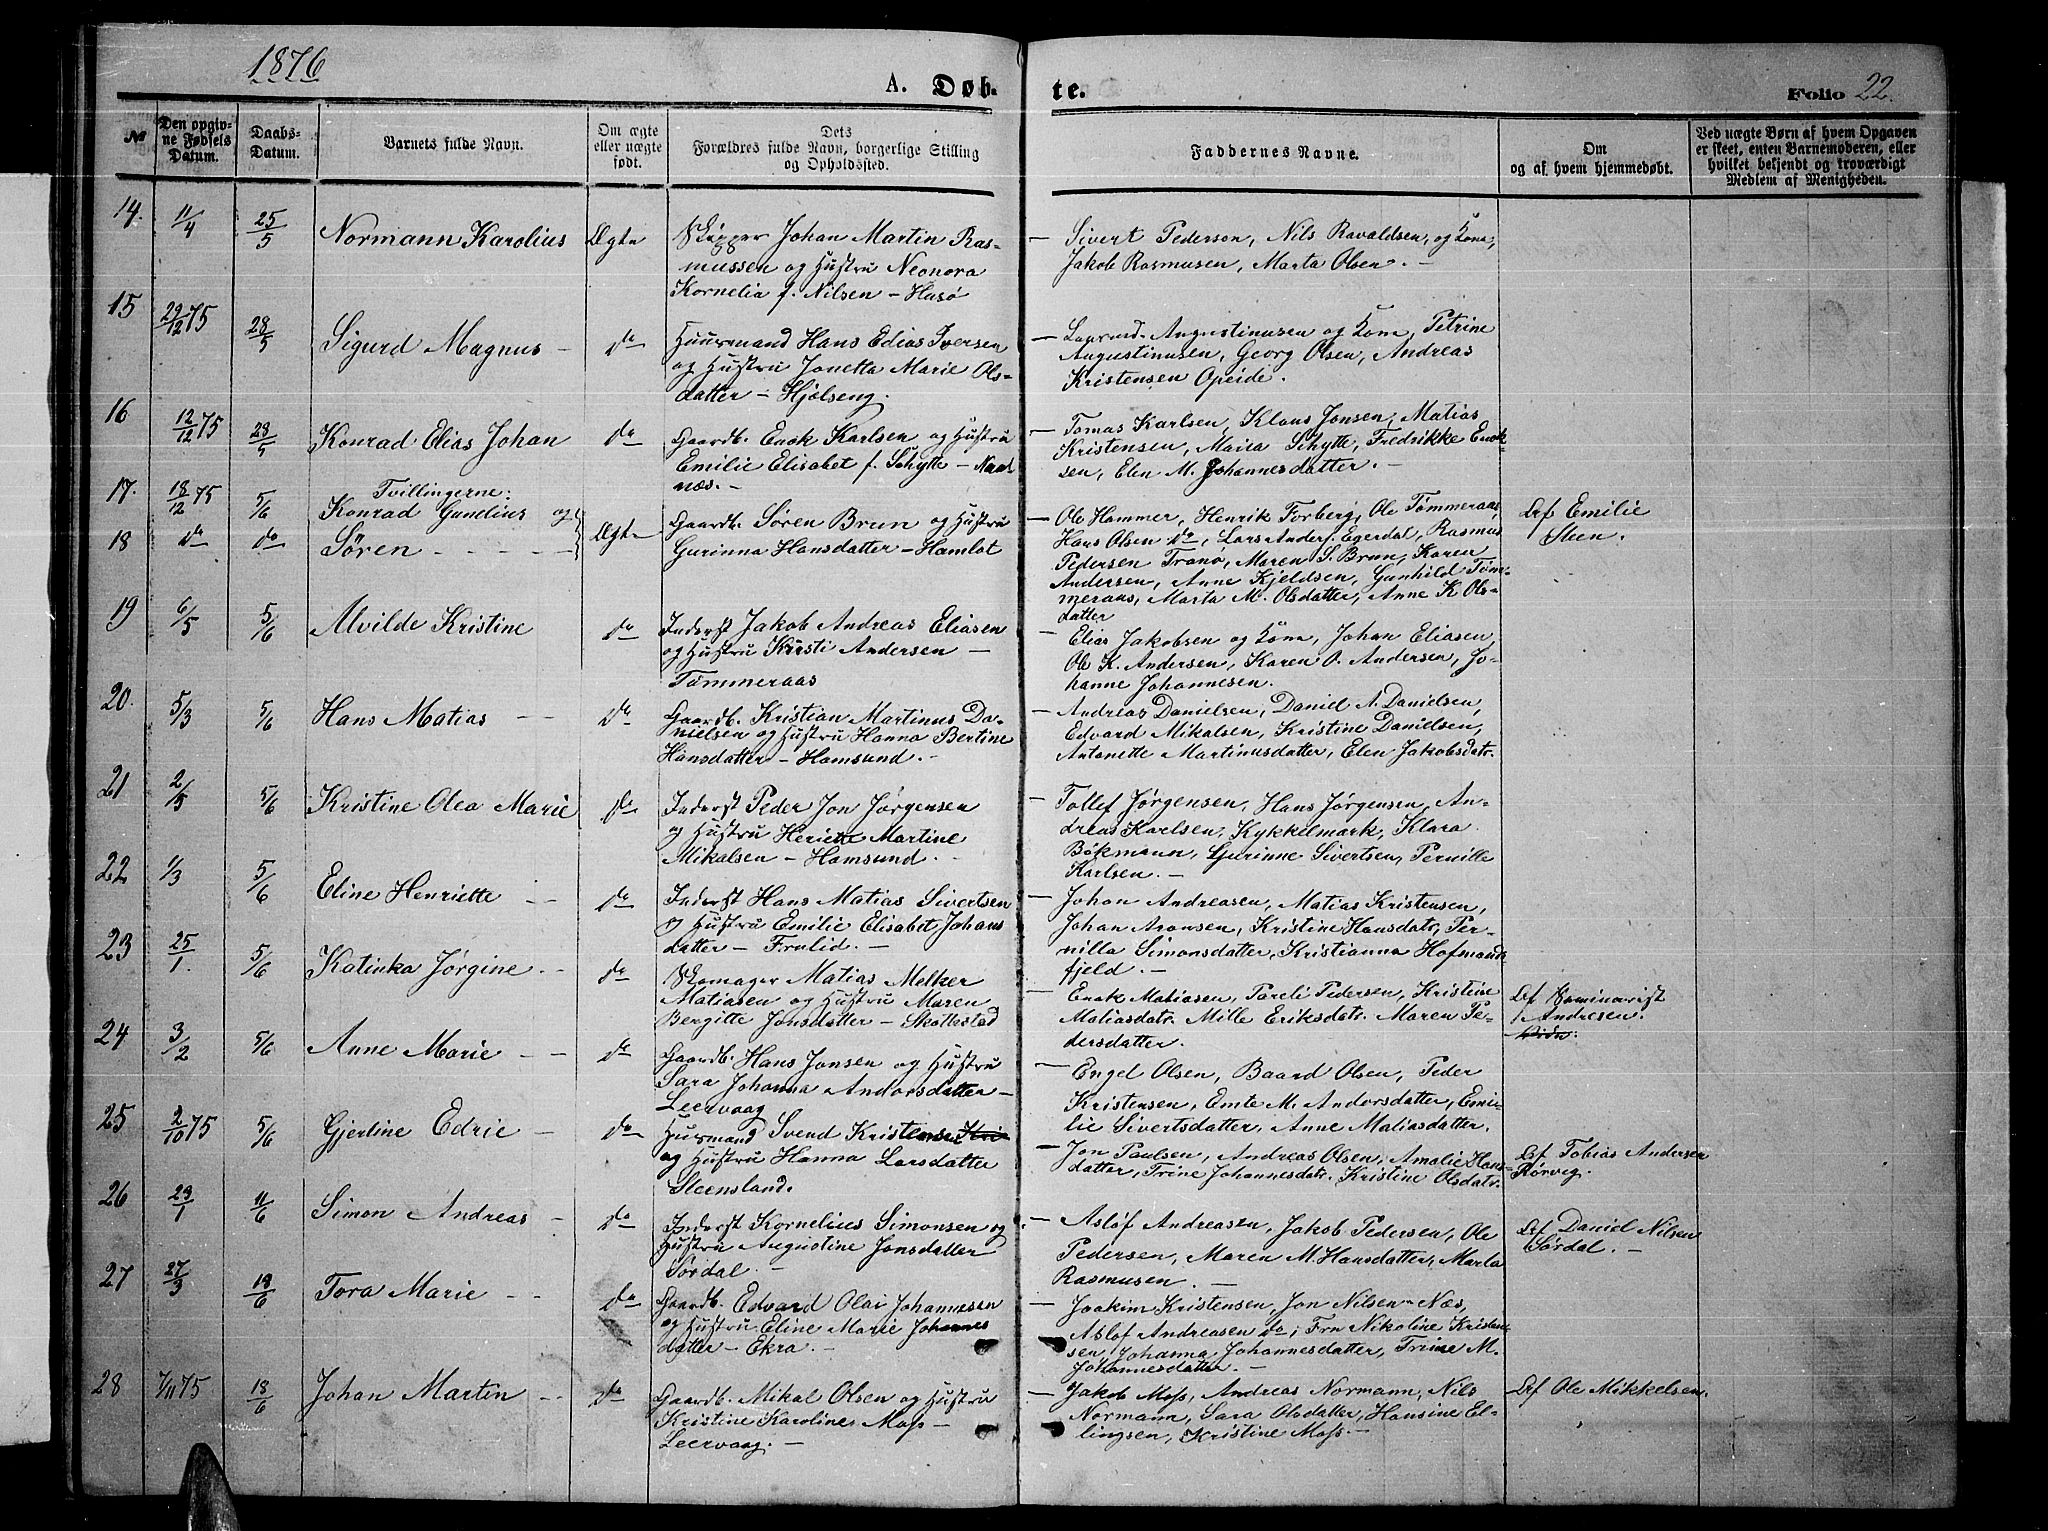 1876
A. Døb-
te.
Folio 22.
№
Den opgiv-
ne Fødsels
Datum.
Daabs-
Datum.
Barnets fulde Navn.
Om ægte
eller uægte
født.
Dets
Forældres fulde Navn, borgerlige Stilling
og Opholdssted.
Faddernes Navne.
Om
og af hvem hjemmedøbt.
Ved uægte Børn af hvem Opgaven
er skeet, enten Barnemoderen, eller
hvilket bekjendt og troværdigt
Medlem af Menigheden.
14. 11/4 25/5 Normann Karolius Ægte
Skipper Johan Martin Ras-
mussen og Hustru Neonora
Kornelia f. Nilsen – Husø
– Sivert Pederson, Nils Ravaldsen, og Kone,
Jakob Rasmusen, Marta Olsen. –
15 29/12 75 28/5 Sigurd Magnus – do
Huusmand Hans Edias Iversen
og Hustru Jonetta Marie Ols-
datter – Hjelseng.
– Augustinusen og Kone, Petrine
Augustinusen, Georg Olsen, Andreas
Kristensen Opeide.
16 12/12 75 28/5 Konrad Elias Johan do
Gaardb. Enok Karlsen og Hustru
Emilie Elisabet f. Schytte –
næs. –
– Tomas Karlsen, Klaus Jonsen, Matias
Kristensen, Maria Schytte, Fredrikke Enok-
sen, Elen M. Johannesdatter. –
17. 18/12 75 5/6 Tvillingerne:
Konrad Gunelius og
18 do do Søren – – – – – Ægte
Gaardb. Søren Brun og Hustru
Gurinna Hansdatter – Hamlot
– Ole Hammer, Henrik Forberg, Ole Tømmeraas,
Hans Olsen do, Lars Anders. Egerdal, Rasmus
Pedersen Tranø, Maren S. Brun, Karen
Andersen, Anne Kjeldsen, Gunhild Tøm-
meraas, Marta M. Olsdatter, Anne K Ols-
datter
Af Emilie
Steen.
19 6/5 5/6 Alvilde Kristine do
Inderst Jakob Andreas Eliasen
og Hustru Kirsti Andersen –
Tømmeraas
– Elias Jakobsen og Kone, Johan Eliasen,
Ole K. Andersen, Karen O. Andersen, Jo-
hanne Johannesen.
20. 5/3 5/6 Hans Matias – – do
Gaardb. Kristian Martinus Da-
nielsen og Hustru Hanna Bertine
Hansdatter – Hamsund. –
– Andreas Danielsen, Daniel A. Danielsen,
Edvard Mikalsen, Kristine Danielsen,
Antonette Martinusdatter, Elen Jakobsdatr.
21 2/5 5/6 Kristine Olea Marie do
Inderst Peder Jon Jørgensen
og Hustru Heriette Martine
Mikalsen – Hamsund. –
– Tollef Jørgensen, Hans Jørgensen, An-
dreas Karlsen, Kykkelmark, Klara
Bøkmann, Gjurinne Sivertsen, Pernille
Karlsen. –
22 1/3 5/6 Eline Henriette – – do
Inderst Hans Matias Sivertsen
og Hustru Emilie Elisabet Johans
datter – Frulid. –
– Johan Andreasen, Matias Kristensen,
Johan Aronsen, Kristine Hansdatr, Per-
nilla Simonsdatter, Kristianna Hofmand
fjeld. –
23 25/1. 5/6 Katinka Jørgine. – – do
Skomager Matias Melker
Matiasen og Hustru Maren
Bergitte Jonsdatter – Skotstad
– Enok Matiasen, Pareli Pedersen, Kristine
Matiasdatr. Mille Eriksdatr. Maren Pe-
dersdatter.
Af Seminarist
Andresen.
24 3/2 5/6 Anne Marie – – do
Gaardb. Hans Jonsen og Hustru
Sara Johanna Andorsdatter –
Leervaag
– Engel Olsen, Baard Olsen, Peder
Kristensen, Emte M. Andorsdatter, Emi-
lie Sivertsdatter, Anne Matiasdatter.
25 2/10 75 5/6 Gjertine Edrie – do
Huusmand Svend Kristensen
og Hustru Hanna Larsdatter
Steensland.
– Jon Paulsen, Andreas Olsen, Amalie Hans-
datter, Trine Johannesdatr. Kristine Olsdatr.
Af Tobias Andersen
Rørvig.
26 23/1 11/6 Simon Andreas – do
Inderst Kornelius Simonsen og
Hustru Augustine Jonsdatter
Sørdal. –
– Asløf Andreasen, Jakob Pedersen, Ole
Pedersen, Maren M. Hansdatter, Marta
Rasmusen. –
Af Daniel Nilsen
Sørdal. –
27 27/3 18/6 Tora Marie – – do
Gaardb. Edvard Olai Johannesen
og Hustru Eline Marie Johannes
datter – Ekra. –
– Joakim Kristensen, Jon Nilsen – Næs,
Asløf Andreasen do, Fru Nikoline Kristen-
sen, Johanna Johannesdatter, Trine M.
Johannesdatter. –
28 7/11 75 18/6 Johan Martin – – do
Gaardb. Mikal Olsen og Hustru
Kristine Karoline Moss –
Leervaag. –
– Jakob Moss, Andreas Normann, Nils
Normann, Sara Olsdatter, Hansine El-
lingsen, Kristine Moss. –
Af Ole Mikkelsen.